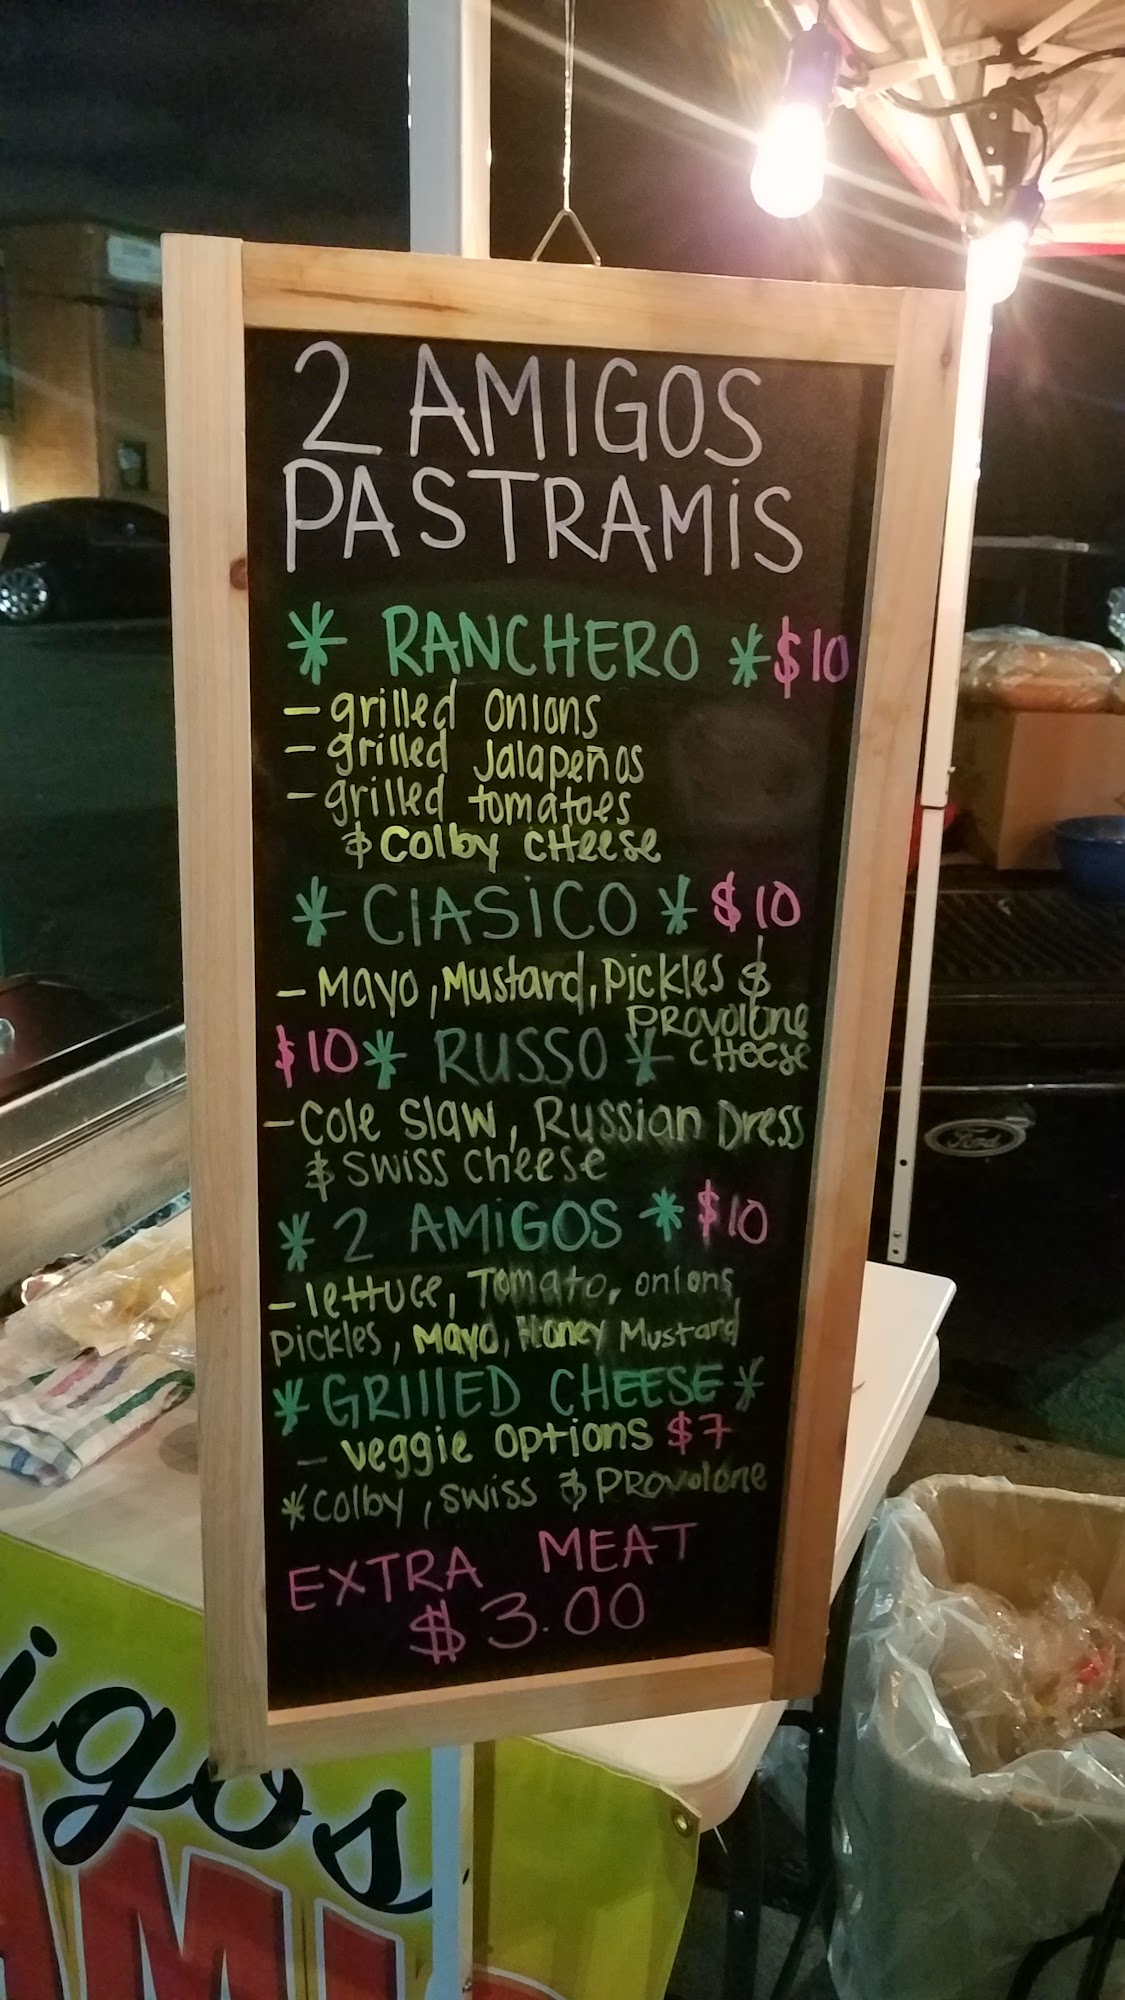 2 AMIGOS
PASTRAMiS
* RANCHERO * $10
- grilled onions
- grilled Jalapeños
- grilled tomatoes
& Colby CHeese
* ClASiCO * $10
- Mayo, Mustard, Pickles &
PROVOlONe
CHeese
$10 * RUSSO *
- Cole Slaw, Russian Dress
& Swiss cheese
* 2 AMiGOS * $10
- lettuce, Tomato, onions,
Pickles, Mayo, Honey Mustard
* GRIllED CHEESE *
- veggie options $7
* Colby, Swiss & PROVOlone
EXTRA MEAT
$3.00
Ford
igos
AMI